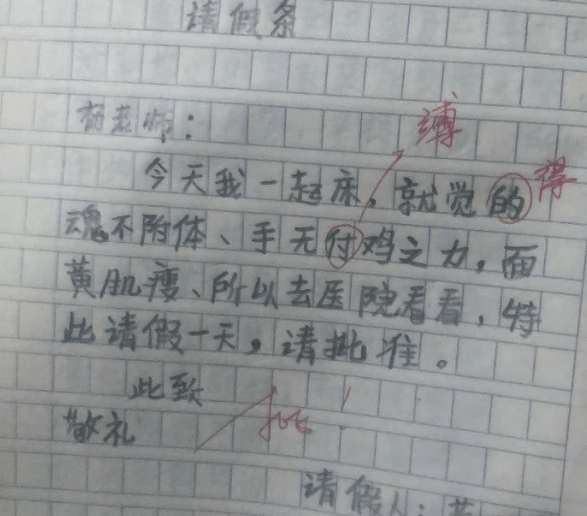 请假条
杨老师：
缚
今天我一起床，就觉的
得
魂不附体、手无付鸡之力，面
黄肌瘦、所以去医院看看，特
此请假一天，请批准。
此致
敬礼
批！
请假人：